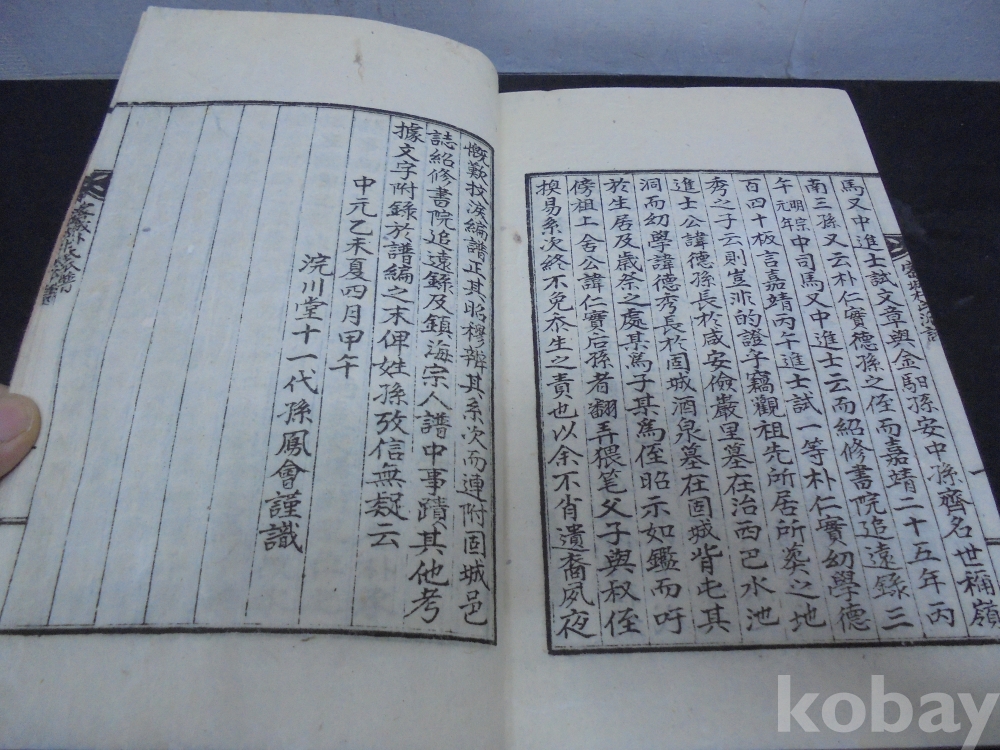 馬又中進士試文章與金馹孫安中孫齊名世稱嶺
南三孫又云朴仁實德孫之侄而嘉靖二十五年丙
午明宗元年中司馬又中進士云而紹修書院追遠錄三
百四十板言嘉靖丙午進士試一等朴仁實幼學德
秀之子云則豈非的證乎竊觀祖先所居所葬之地
進士公諱德孫長於咸安儉巖里墓在治西巴水池
洞而幼學諱德秀長於固城酒泉墓在固城背屯其
於生居及歲祭之處某爲子某爲侄昭示如鑑而吁
傍祖上舍公諱仁實后孫者翻弄猥笔父子與叔侄
換易系次終不免忝生之責也以余不肖遺裔夙夜
慨歎抆淚編譜正其昭穆辨其系次而連附固城邑
誌紹修書院追遠錄及鎭海宗人譜中事蹟其他考
據文字附錄於譜編之末俾姓孫攷信無疑云
中元乙未夏四月甲午
浣川堂十一代孫鳳會謹識
kobay